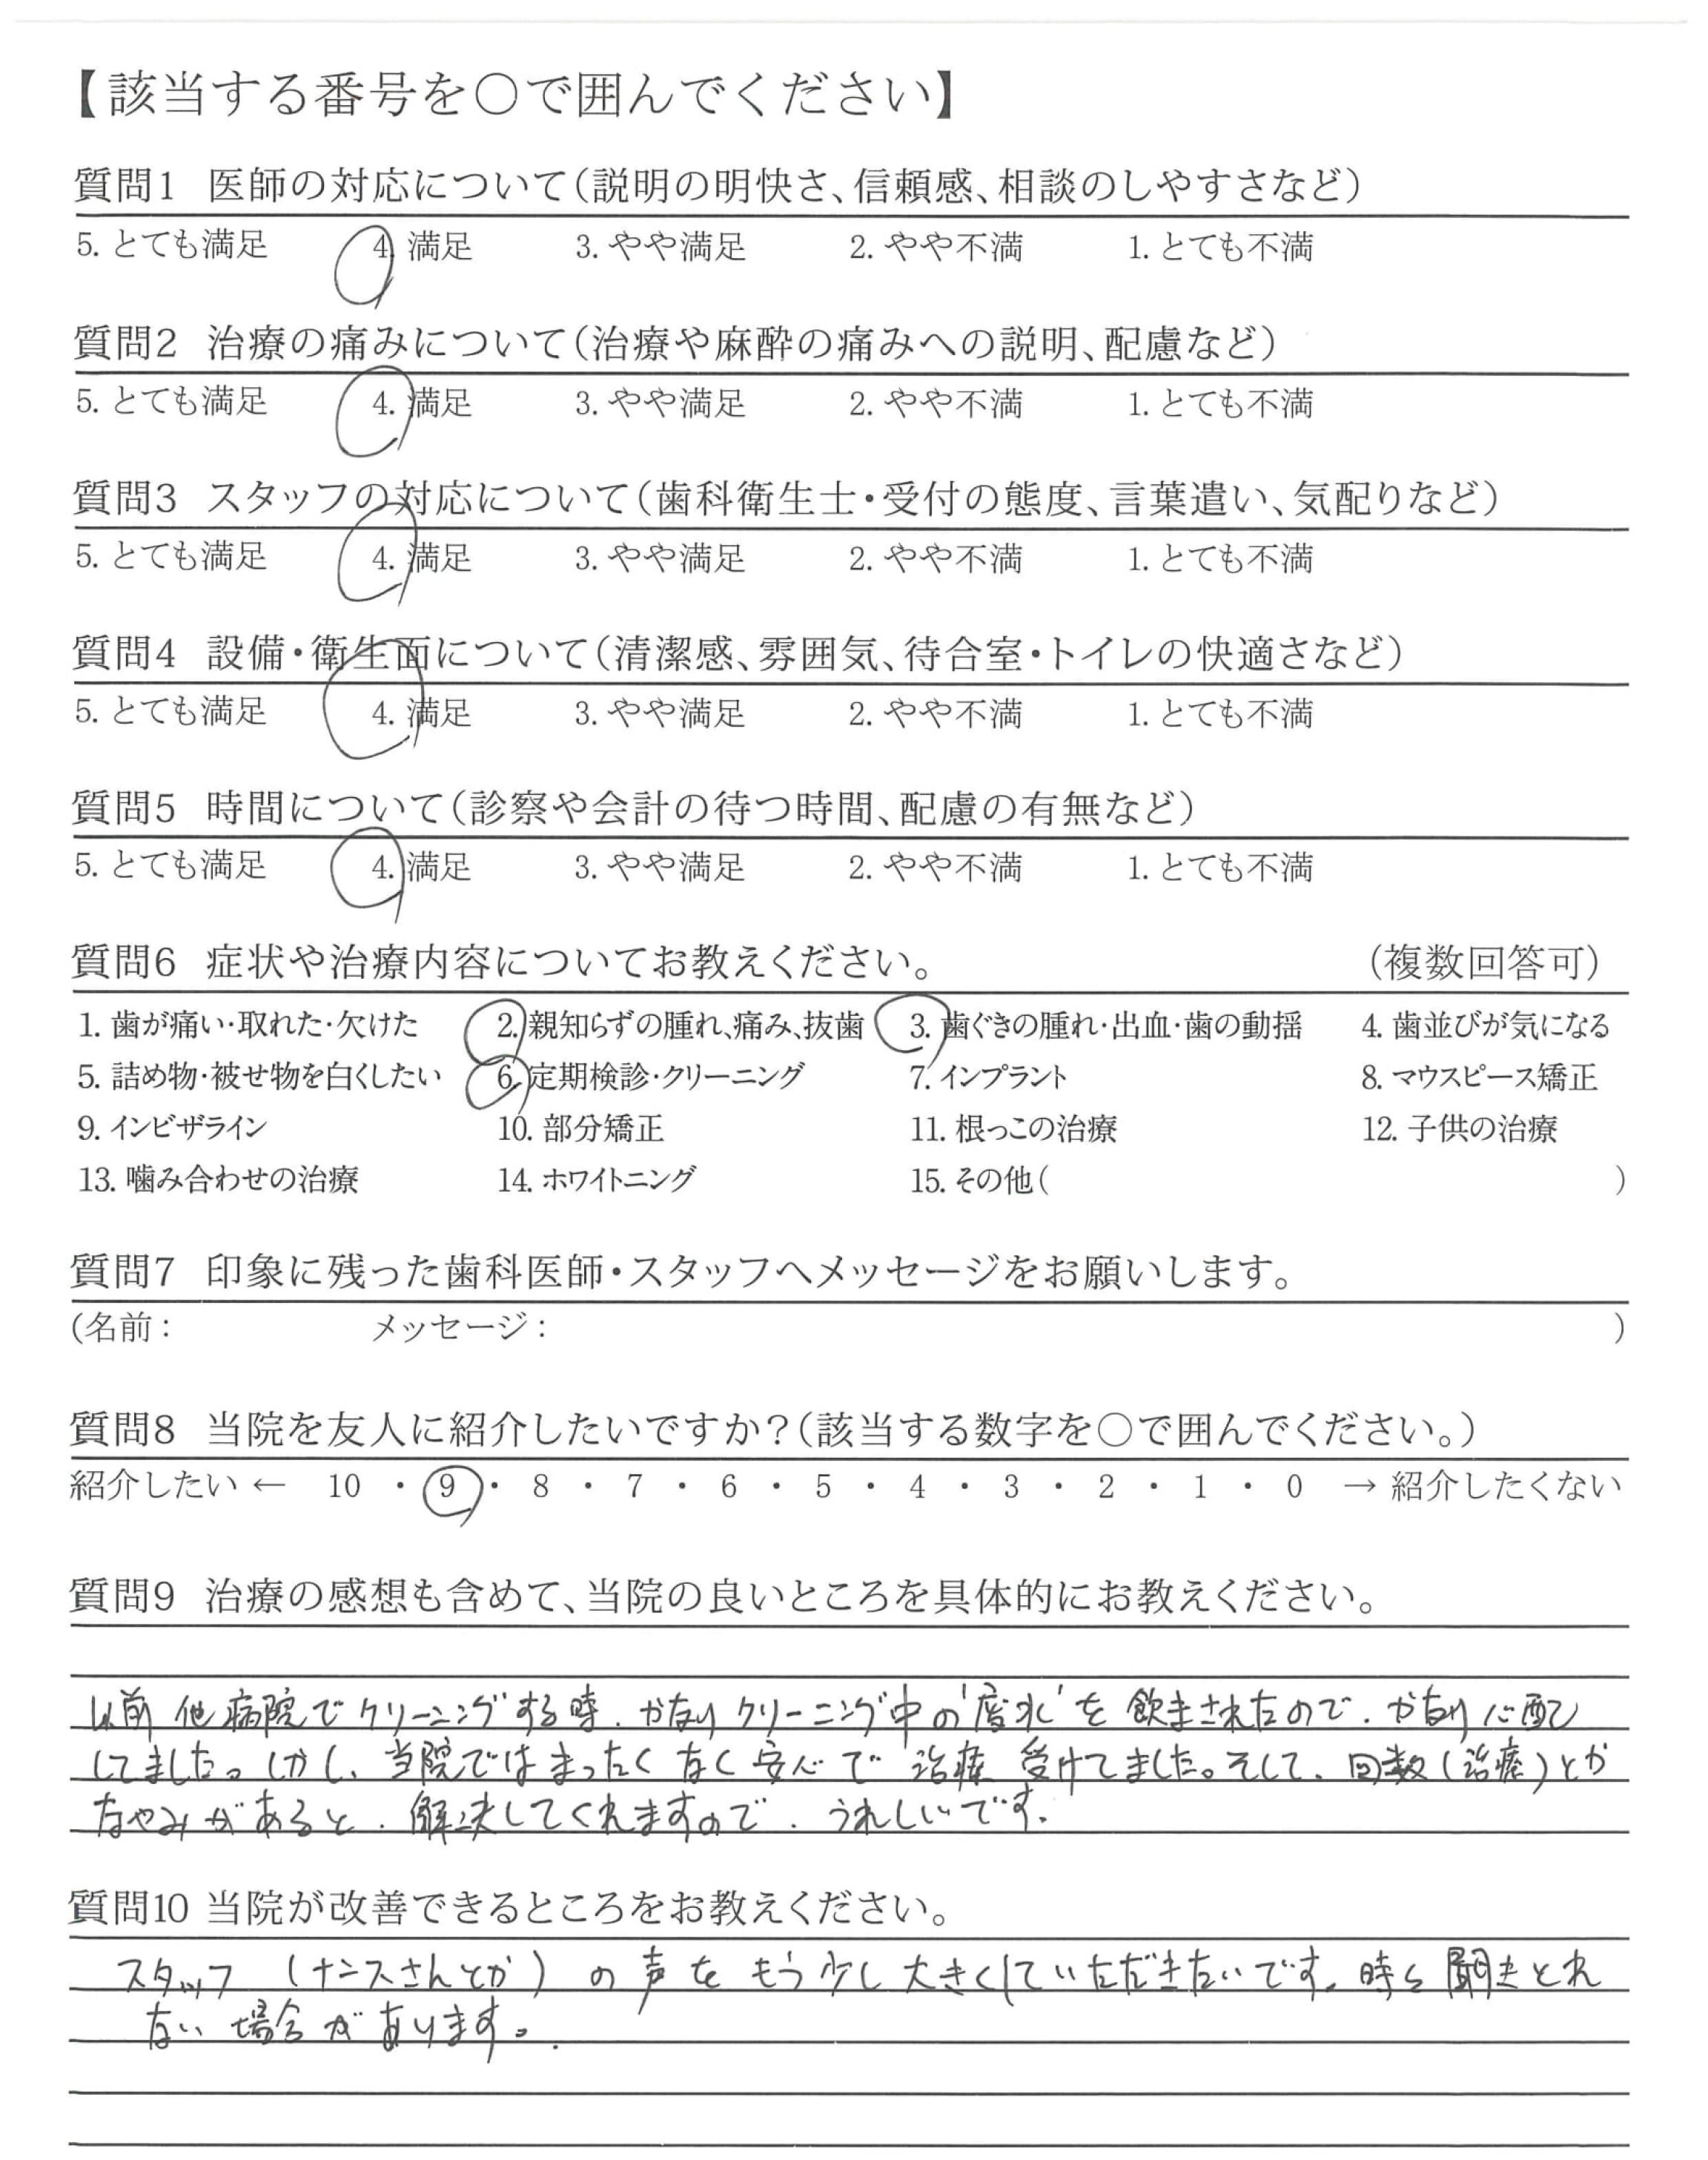 【該当する番号を○で囲んでください】
質問1 医師の対応について(説明の明快さ、信頼感、相談のしやすさなど)
5. とても満足 4. 満足 3. やや満足 2. やや不満 1. とても不満
質問2 治療の痛みについて(治療や麻酔の痛みへの説明、配慮など)
5. とても満足 4. 満足 3. やや満足 2. やや不満 1. とても不満
質問3 スタッフの対応について(歯科衛生士・受付の態度、言葉遣い、気配りなど)
5. とても満足 4. 満足 3. やや満足 2. やや不満 1. とても不満
質問4 設備・衛生面について(清潔感、雰囲気、待合室・トイレの快適さなど)
5. とても満足 4. 満足 3. やや満足 2. やや不満 1. とても不満
質問5 時間について(診察や会計の待つ時間、配慮の有無など)
5. とても満足 4. 満足 3. やや満足 2. やや不満 1. とても不満
質問6 症状や治療内容についてお教えください。 (複数回答可)
1. 歯が痛い・取れた・欠けた 2. 親知らずの腫れ、痛み、抜歯 3. 歯ぐきの腫れ・出血・歯の動揺 4. 歯並びが気になる
5. 詰め物・被せ物を白くしたい 6. 定期検診・クリーニング 7. インプラント 8. マウスピース矯正
9. インビザライン 10. 部分矯正 11. 根っこの治療 12. 子供の治療
13. 噛み合わせの治療 14. ホワイトニング 15. その他( )
質問7 印象に残った歯科医師・スタッフへメッセージをお願いします。
(名前: メッセージ: )
質問8 当院を友人に紹介したいですか?(該当する数字を○で囲んでください。)
紹介したい ← 10 ・ 9 ・ 8 ・ 7 ・ 6 ・ 5 ・ 4 ・ 3 ・ 2 ・ 1 ・ 0 → 紹介したくない
質問9 治療の感想も含めて、当院の良いところを具体的にお教えください。
以前 他病院でクリーニングする時、かなりクリーニング中の'廃水'を飲まされたので、かなり心配
してました。しかし、当院ではまったくなく安心で治療受けてました。そして、回数(治療)とか
なやみがあると、解決してくれますので、うれしいです。
質問10 当院が改善できるところをお教えください。
スタッフ (ナンスさんとか) の声をもう少し大きくしていただきたいです。時々聞きとれ
ない場合があります。